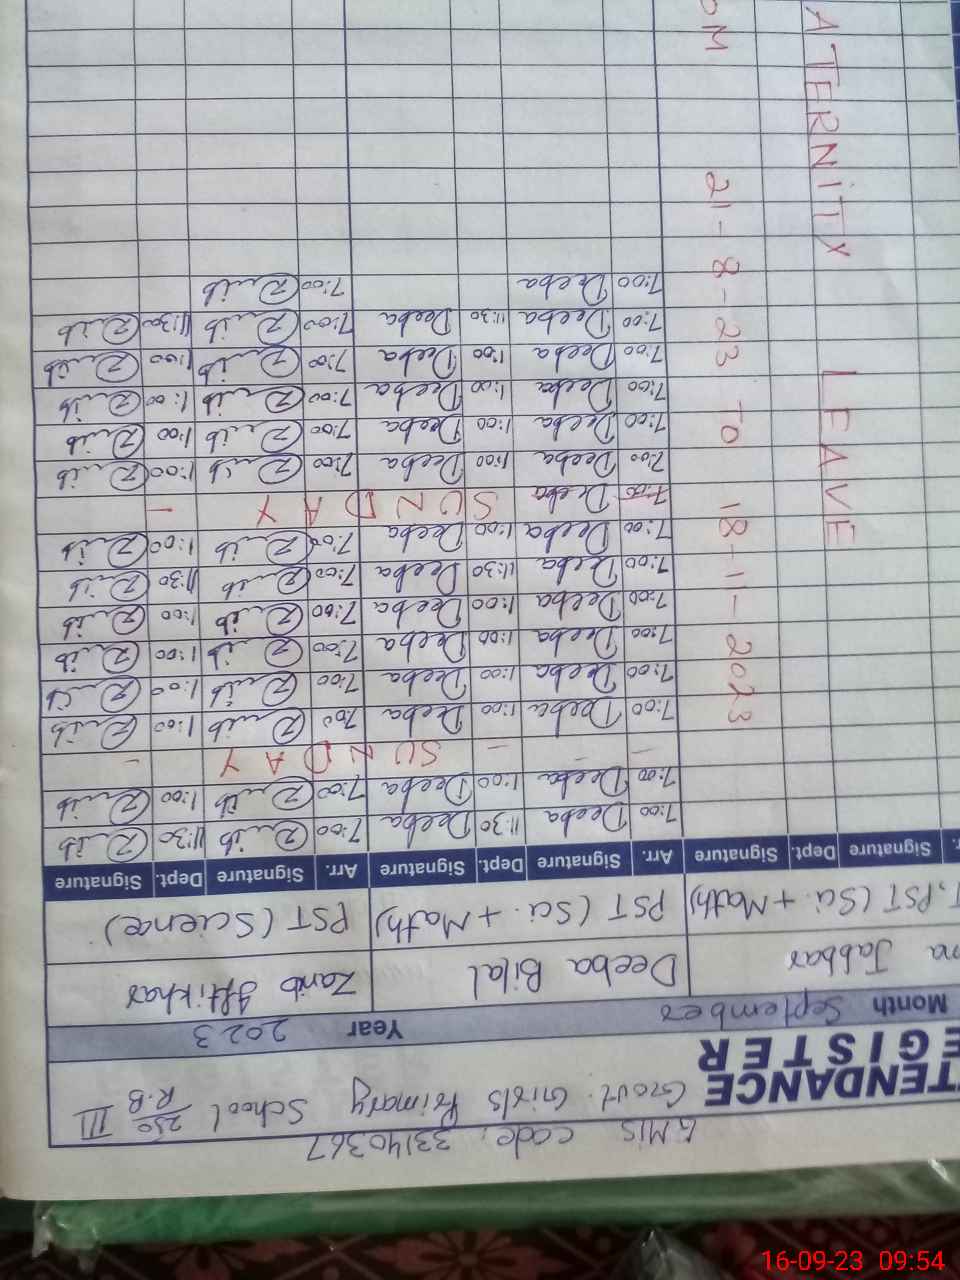 EMIS code: 33140367
TENDANCE Govt. Girls Primary School 250/R.B III
EGISTER
Month September Year 2023
na Jabbar Deeba Bilal Zanib Iftikhar
T, PST (Sci + Math) PST (Sci. + Math) PST (Science)
r. Signature Dept. Signature Arr. Signature Dept. Signature Arr. Signature Dept. Signature
7:00 Deeba 11:30 Deeba 7:00 Zaib 11:30 Zaib
7:00 Deeba 1:00 Deeba 7:00 Zaib 1:00 Zaib
- - - SUNDAY -
7:00 Deeba 1:00 Deeba 7:00 Zaib 1:00 Zaib
7:00 Deeba 1:00 Deeba 7:00 Zaib 1:00 Zaib
7:00 Deeba 1:00 Deeba 7:00 Zaib 1:00 Zaib
7:00 Deeba 1:00 Deeba 7:00 Zaib 1:00 Zaib
7:00 Deeba 11:30 Deeba 7:00 Zaib 11:30 Zaib
7:00 Deeba 1:00 Deeba 7:00 Zaib 1:00 Zaib
7:00 Deeba SUNDAY -
7:00 Deeba 1:00 Deeba 7:00 Zaib 1:00 Zaib
7:00 Deeba 1:00 Deeba 7:00 Zaib 1:00 Zaib
7:00 Deeba 1:00 Deeba 7:00 Zaib 1:00 Zaib
7:00 Deeba 1:00 Deeba 7:00 Zaib 1:00 Zaib
7:00 Deeba 11:30 Deeba 7:00 Zaib 11:30 Zaib
7:00 Deeba 7:00 Zaib
ATERNITY LEAVE
OM 21-8-23 TO 18-11-2023
16-09-23 09:54